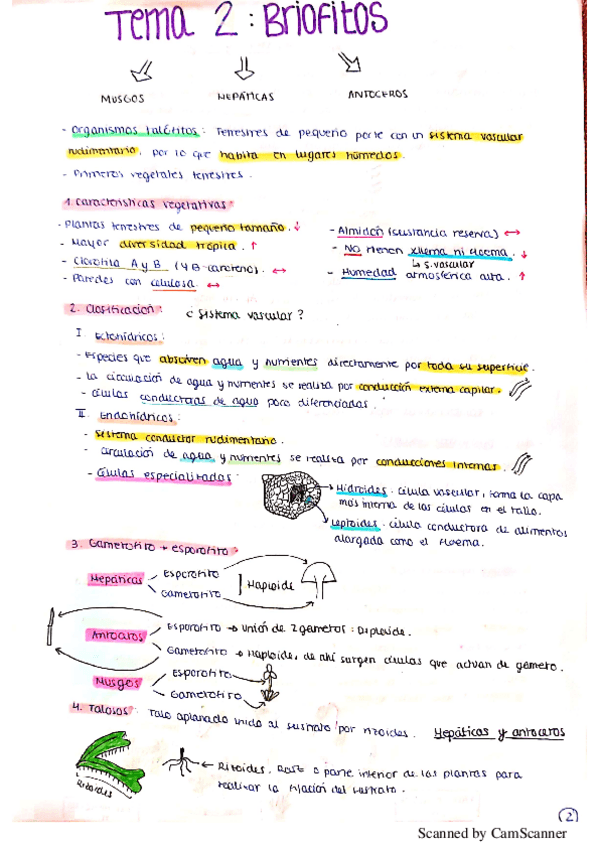 Tema 2: Briofitos
MUSGOS
HEPÁTICAS
ANTOCEROS
- Organismos talofitos: Terrestres de pequeño porte con un sistema vascular
rudimentario, por lo que habita en lugares húmedos.
- Primeros vegetales terrestres.
1. Características vegetativas:
- Plantas terrestres de pequeño tamaño. ↓
- Mayor diversidad trópica. ↑
- Clorofila A y B (y B-caroteno). ↔
- Paredes con celulosa ↔
- Almidón (sustancia reserva) ↔
- NO tienen xilema ni floema. ↓
↳ S. vascular
- Humedad atmosférica alta. ↑
2. Clasificación: ¿Sistema vascular?
I. Ectohídricos:
- Especies que absorven agua y nutrientes directamente por toda su superficie.
- La circulación de agua y nutrientes se realiza por conducción externa capilar.
- Células conductoras de agua poco diferenciadas.
II. Endohídricos:
- Sistema conductor rudimentario.
- Circulación de agua y nutrientes se realiza por conducciones internas.
- Células especializadas:
→ Hidroides. célula vascular, forma la capa
más interna de las células en el tallo.
→ Leptoides. célula conductora de alimentos
alargada como el floema.
3. Gametofito + esporofito:
Hepáticas
Esporofito
Gametofito
Haploide
Antoceros
Esporofito → Unión de 2 gametos: Diploide.
Gametofito → Haploide, de ahí surgen células que actúan de gameto.
Musgos
Esporofito
Gametofito
4. Talosos: Talo aplanado unido al sustrato por rizoides. Hepáticas y antoceros
Rizoides
← Rizoides. o parte inferior de las plantas para
realizar la fijación del sustrato.
2
Scanned by CamScanner